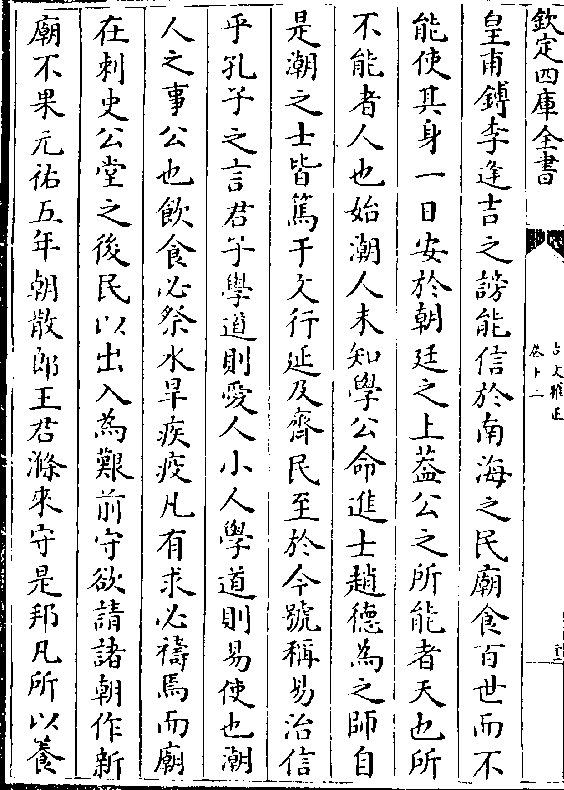 欽定四庫全書
古文雅正
卷十二
皇甫鎛李逢吉之謗能信於南海之民廟食百世而不
能使其身一日安於朝廷之上葢公之所能者天也所
不能者人也始潮人未知學公命進士趙德為之師自
是潮之士皆篤于文行延及齊民至於今號稱易治信
乎孔子之言君子學道則愛人小人學道則易使也潮
人之事公也飲食必祭水旱疾疫凡有求必禱焉而廟
在刺史公堂之後民以出入為艱前守欲請諸朝作新
廟不果元祐五年朝散郎王君滌來守是邦凡所以養